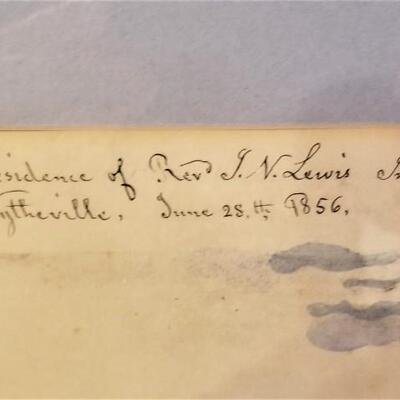 esidence of Revd J. N. Lewis
ytheville, June 28.th, 1856,